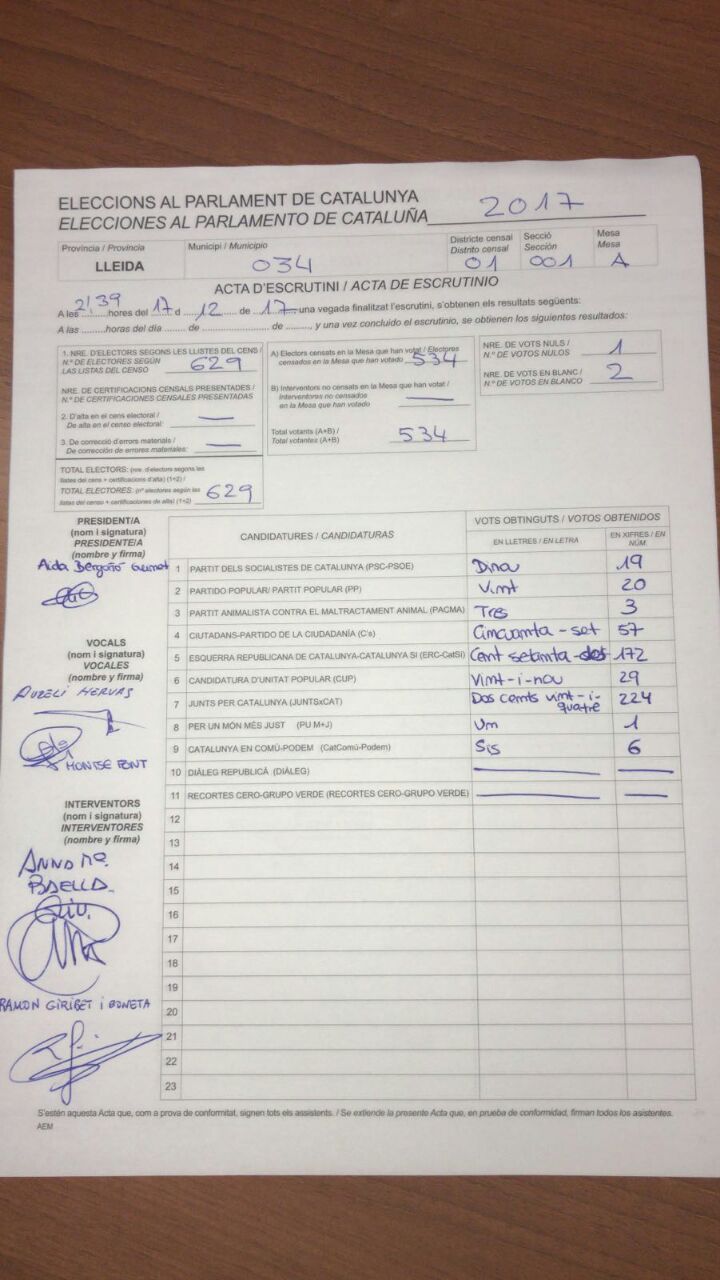 ELECCIONS AL PARLAMENT DE CATALUNYA
ELECCIONES AL PARLAMENTO DE CATALUÑA 2017
Província / Provincia Municipi / Municipio Districte censal Secció Mesa
Distrito censal Sección Mesa
LLEIDA 034 01 001 A
ACTA D'ESCRUTINI / ACTA DE ESCRUTINIO
A les 21,39 hores del 17 d 12 de 17 una vegada finalitzat l'escrutini, s'obtenen els resultats següents:
A las .........horas del día ........ de ........................ de ........, y una vez concluido el escrutinio, se obtienen los siguientes resultados:
1. NRE. D'ELECTORS SEGONS LES LLISTES DEL CENS /
N.º DE ELECTORES SEGÚN
LAS LISTAS DEL CENSO 629
NRE. DE CERTIFICACIONS CENSALS PRESENTADES /
N.º DE CERTIFICACIONES CENSALES PRESENTADAS
2. D'alta en el cens electoral / —
De alta en el censo electoral:
3. De correcció d'errors materials / —
De corrección de errores materiales:
TOTAL ELECTORS: (nre. d'electors segons les
llistes del cens + certificacions d'alta) (1+2) /
TOTAL ELECTORES: (nº electores según las
listas del censo + certificaciones de alta) (1+2) 629
A) Electors censats en la Mesa que han votat / Electores
censados en la Mesa que han votado 534
B) Interventors no censats en la Mesa que han votat /
Interventores no censados
en la Mesa que han votado —
Total votants (A+B) /
Total votantes (A+B) 534
NRE. DE VOTS NULS / 1
N.º DE VOTOS NULOS
NRE. DE VOTS EN BLANC / 2
N.º DE VOTOS EN BLANCO
PRESIDENT/A
(nom i signatura)
PRESIDENTE/A
(nombre y firma)
Aida
VOCALS
(nom i signatura)
VOCALES
(nombre y firma)
AURELI HERVAS
MONTSE FONT
INTERVENTORS
(nom i signatura)
INTERVENTORES
(nombre y firma)
ANNA Mª
RAMON GIRIBET i BONETA
CANDIDATURES / CANDIDATURAS VOTS OBTINGUTS / VOTOS OBTENIDOS
EN LLETRES / EN LETRA EN XIFRES / EN NÚM.
1 PARTIT DELS SOCIALISTES DE CATALUNYA (PSC-PSOE) 19
2 PARTIDO POPULAR/ PARTIT POPULAR (PP) Vint 20
3 PARTIT ANIMALISTA CONTRA EL MALTRACTAMENT ANIMAL (PACMA) Tres 3
4 CIUTADANS-PARTIDO DE LA CIUDADANÍA (C's) Cincuanta-set 57
5 ESQUERRA REPUBLICANA DE CATALUNYA-CATALUNYA SÍ (ERC-CatSí) Cent setanta-dos 172
6 CANDIDATURA D'UNITAT POPULAR (CUP) Vint-i-nou 29
7 JUNTS PER CATALUNYA (JUNTSxCAT) Dos cents vint-i-quatre 224
8 PER UN MÓN MÉS JUST (PU M+J) Un 1
9 CATALUNYA EN COMÚ-PODEM (CatComú-Podem) Sis 6
10 DIÀLEG REPUBLICÀ (DIÀLEG) — —
11 RECORTES CERO-GRUPO VERDE (RECORTES CERO-GRUPO VERDE) — —
12
13
14
15
16
17
18
19
20
21
22
23
S'estén aquesta Acta que, com a prova de conformitat, signen tots els assistents. / Se extiende la presente Acta que, en prueba de conformidad, firman todos los asistentes.
AEM